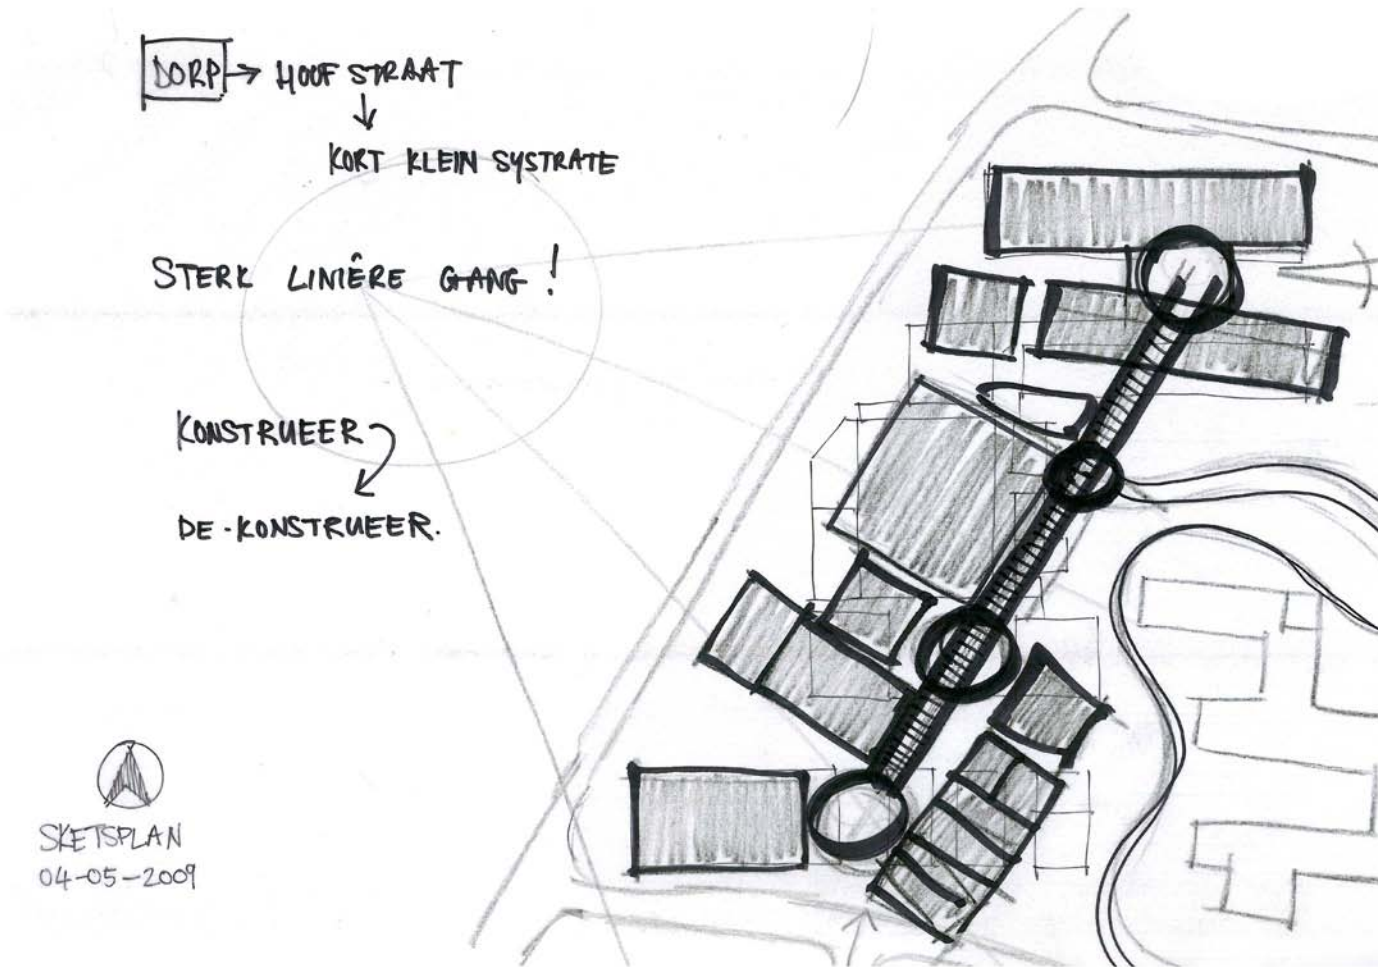 DORP → HOOF STRAAT
↓
KORT KLEIN SYSTRATE
STERK LINIÊRE GANG !
KONSTRUEER
DE-KONSTRUEER.
SKETSPLAN
04-05-2009